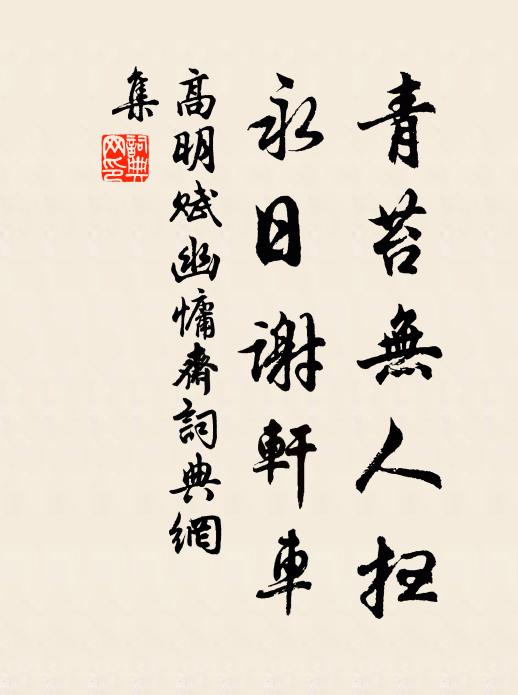 青苔無人扫
永日謝軒車
高明賦幽慵齋詞典網
集
詞典
网印